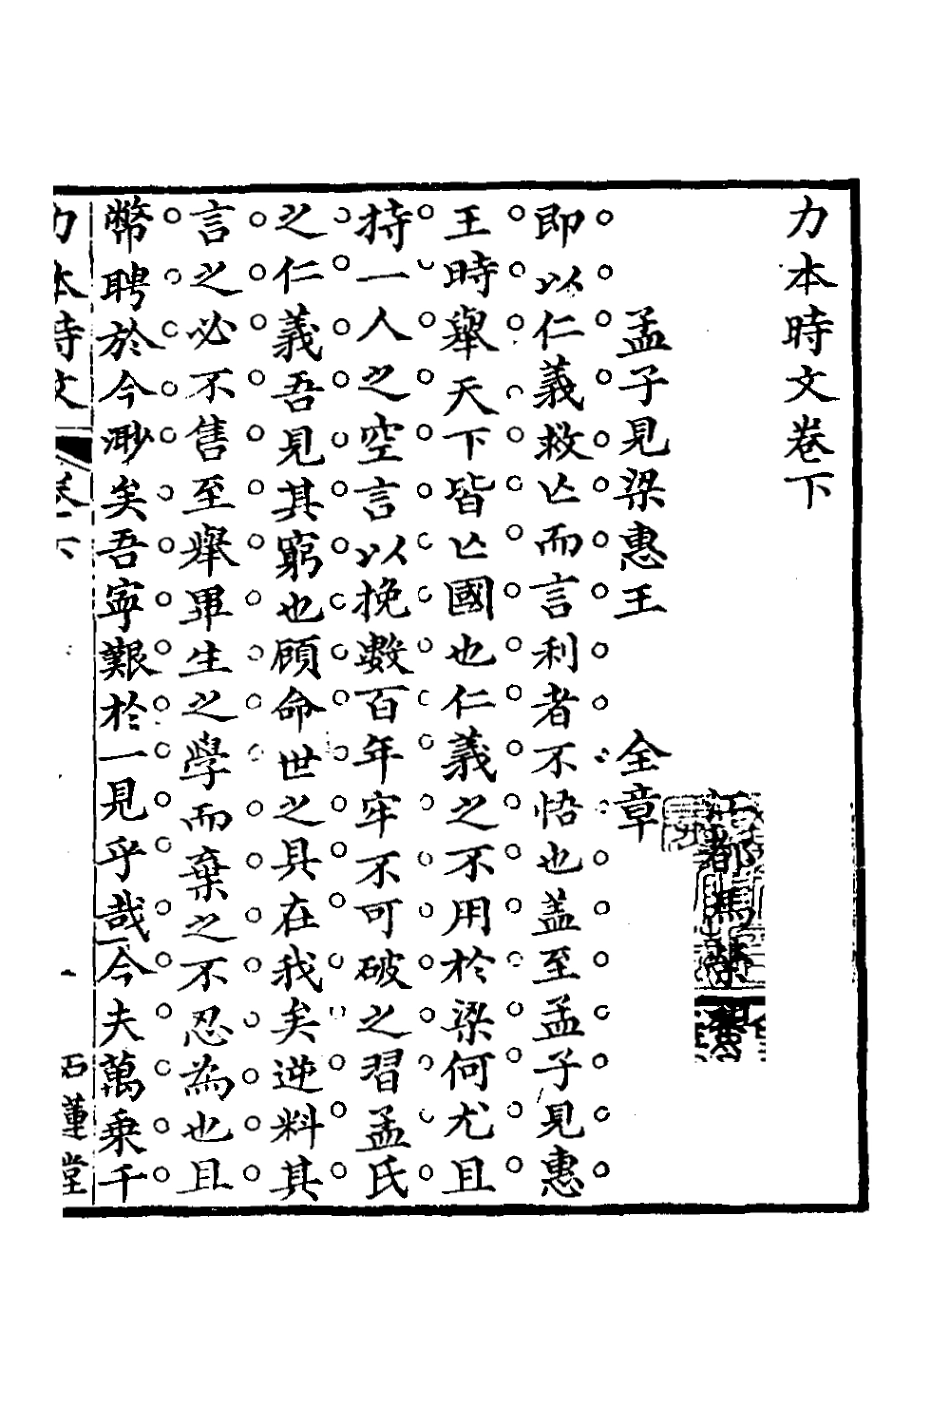 力本時文卷下
江都馬榮祖
孟子見梁惠王　全章
即以仁義救亡而言利者不悟也盖至孟子見惠
王時舉天下皆亡國也仁義之不用於梁何尤且
持一人之空言以挽數百年牢不可破之習孟氏
之仁義吾見其窮也顧命世之具在我矣逆料其
言之必不售至舉畢生之學而棄之不忍為也且
幣聘於今渺矣吾寧艱於一見乎哉今夫萬乗千
力本時文　卷下　石蓮堂